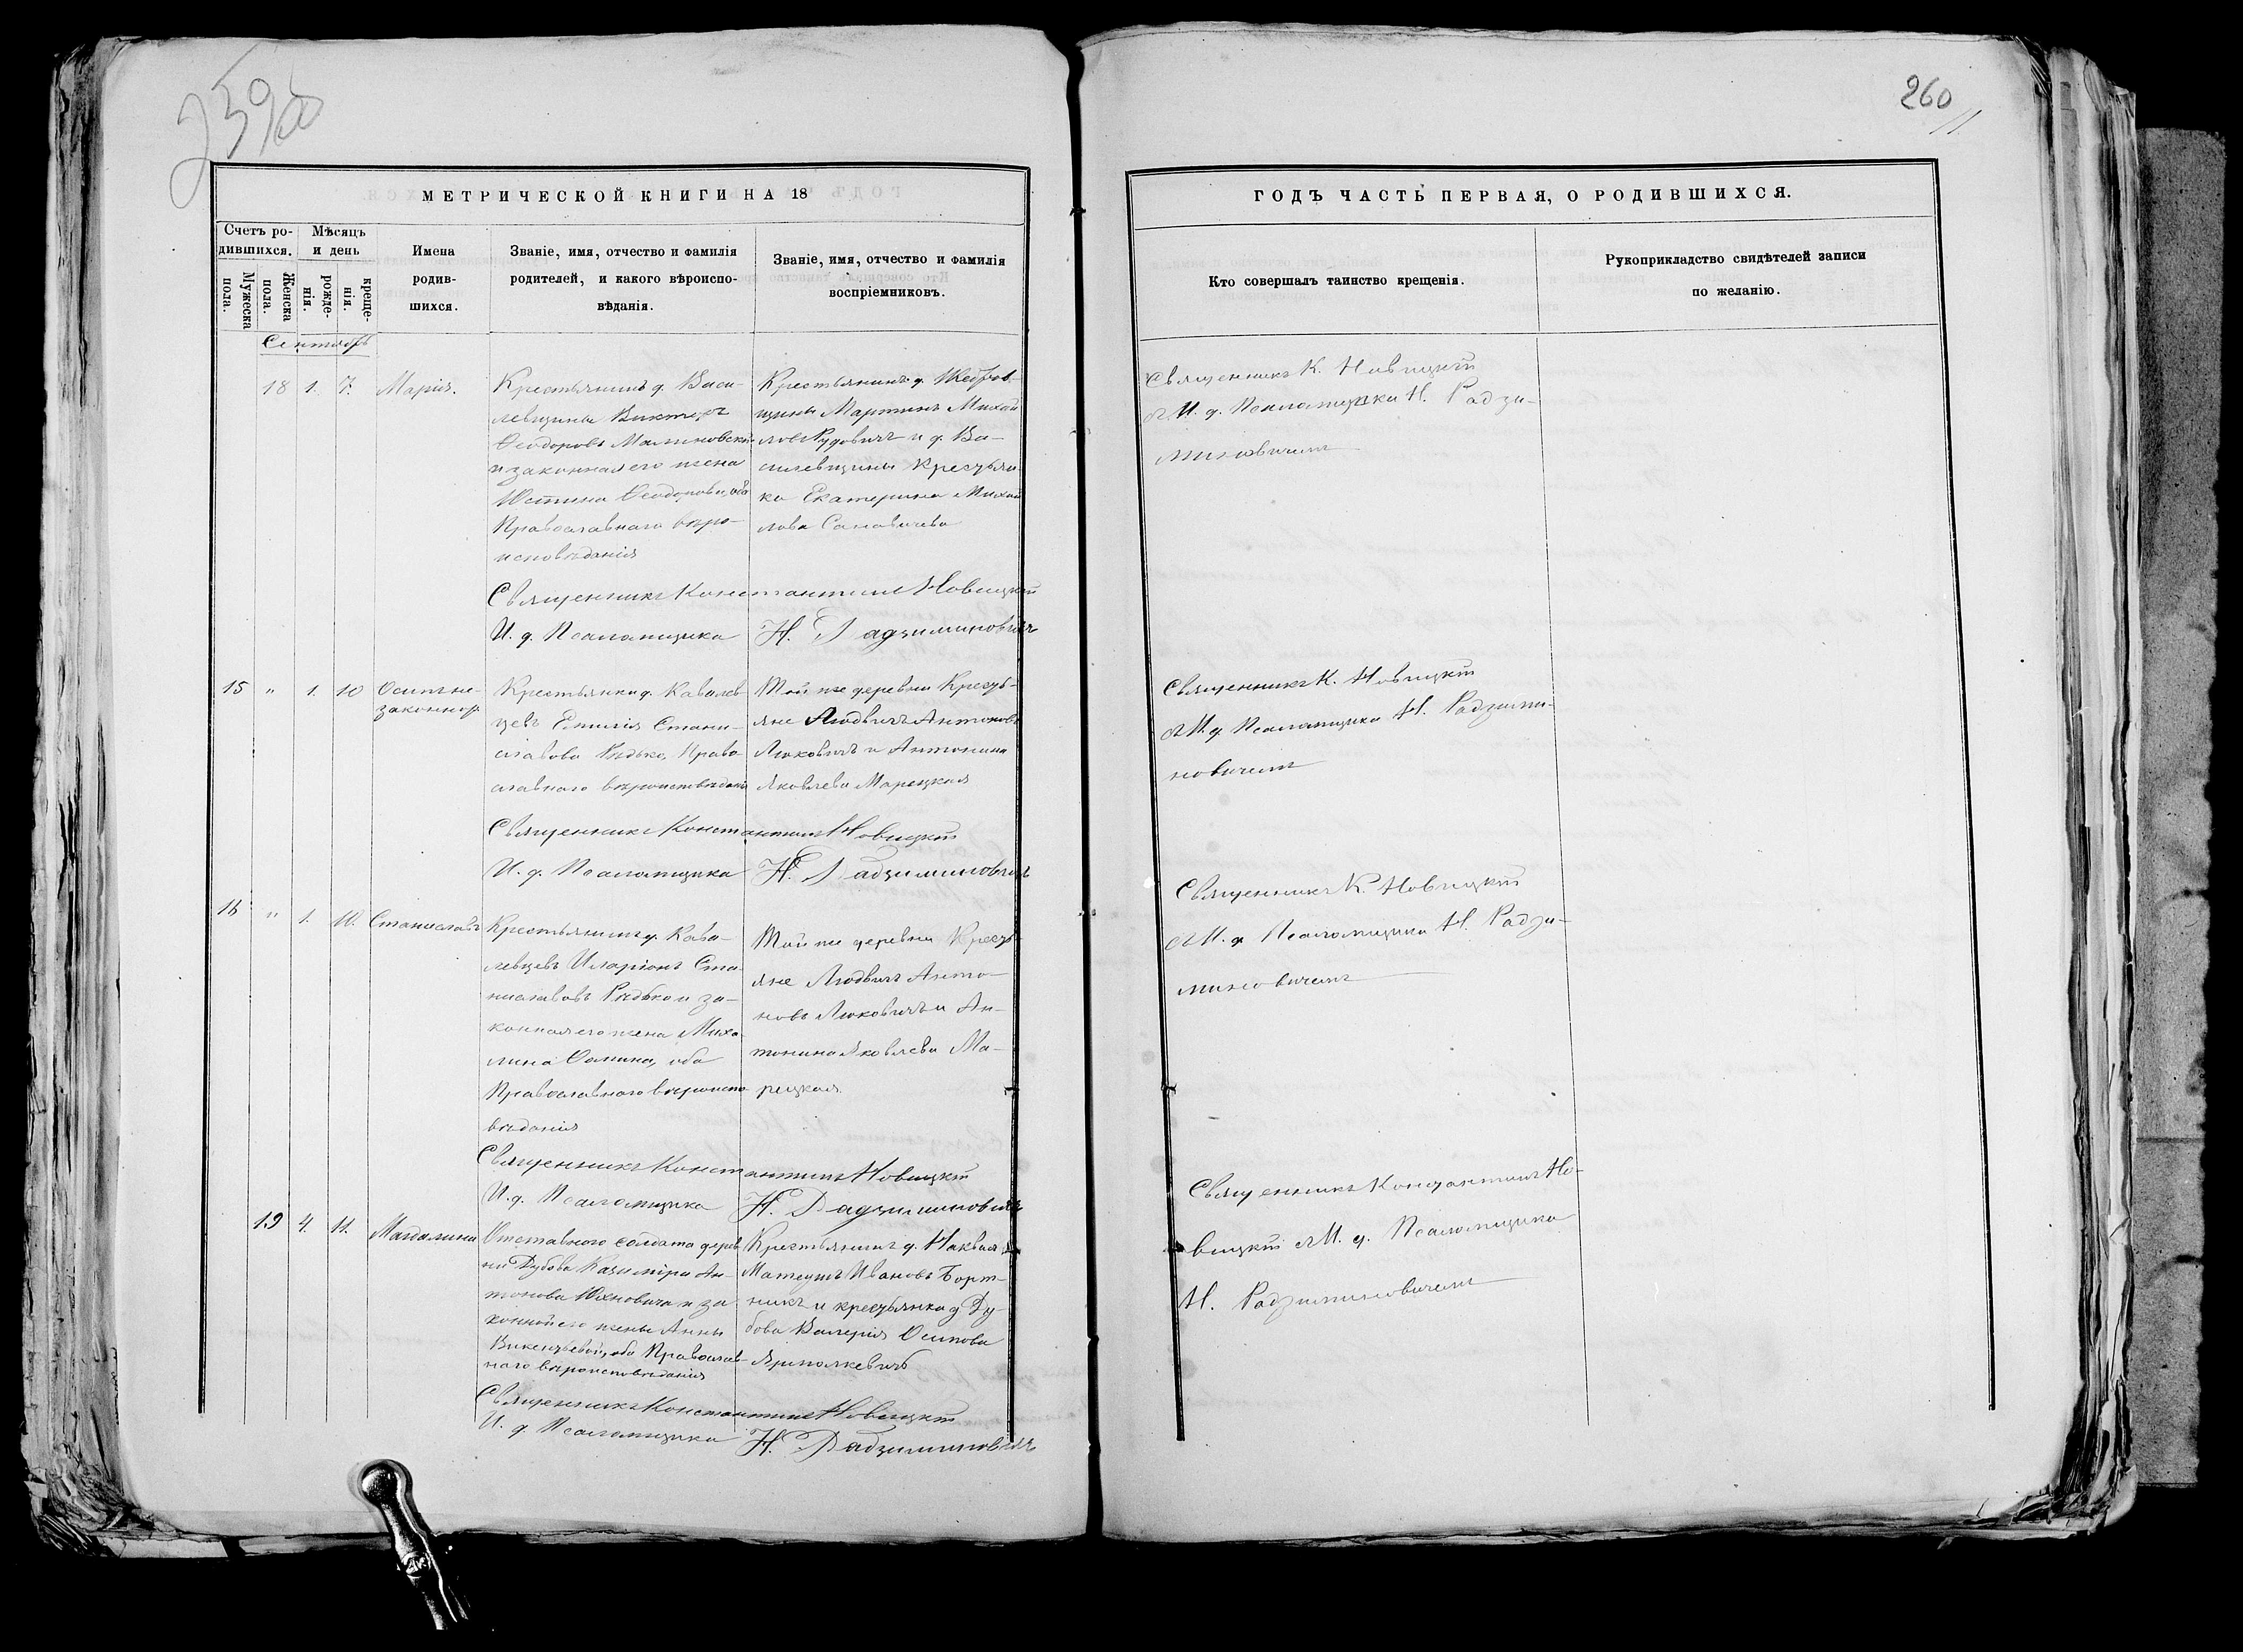 259об
260
МЕТРИЧЕСКОЙ КНИГИ НА 18
Счетъ родившихся.
Мѣсяцъ и день
Мужеска пола.
Женска пола.
рожденія.
крещенія.
Имена родившихся.
Званіе, имя, отчество и фамилія
родителей, и какого вѣроиспо-
вѣданія.
Званіе, имя, отчество и фамилія
воспріемниковъ.
Сентябрь
18 1. 7. Марія.
Крестьянинъ д. Васи-
левщины Викторъ
Ѳеодоровъ Малиновскій
и законная его жена
Юстина Ѳеодорова, оба
Православнаго вѣро-
исповѣданія
Крестьянинъ д.
щины Мартинъ Михай
ловъ Рудовичъ и д. Ва-
силевщины Крестьян-
ка Екатерина Михай
лова
Священникъ Константинъ Новицкій
И. д. Псаломщика Н. Радзиминовичъ
15 " 1. 10 Осипъ не-
законнор.
Крестьянка д. Ковалев
цевъ Емилія Стани-
славова Рѣдько, Право
славнаго вѣроисповѣданія
Той же деревни Кресть-
яне Людвигъ Антоновъ
Люковичъ и Антонина
Яковлева Марецкая
Священникъ Константинъ Новицкій
И. д. Псаломщика Н. Радзиминовичъ
16 " 1. 10. Станиславъ
Крестьянинъ д. Кова-
левцевъ Иларіонъ Ста-
ниславовъ Рѣдько и за-
конная его жена Миха-
лина Ѳомина, оба
Православнаго вѣроиспо
вѣданія
Той же деревни Кресть
яне Людвигъ Анто-
новъ Люковичъ и Ан-
тонина Яковлева Ма-
рецкая.
Священникъ Константинъ Новицкій
И. д. Псаломщика Н. Радзиминовичъ
19 4. 11. Магдалина
Отставного солдата дерев
ни Дубова Казиміра Ан-
тонова Юхновича и за
конной его жены Анны
Викентьевой, оба Православ-
наго вѣроисповѣданія
Крестьянинъ д.
Матеушъ Ивановъ Борт-
никъ и крестьянка д. Ду-
бова Валерія Осипова
Ярмолкевичъ
Священникъ Константинъ Новицкій
И. д. Псаломщика Н. Радзиминовичъ
ГОДЪ ЧАСТЬ ПЕРВАЯ, О РОДИВШИХСЯ.
Кто совершалъ таинство крещенія.
Рукоприкладство свидѣтелей записи
по желанію.
Священникъ К. Новицкій
съ И. д. Псаломщика Н. Радзи-
миновичемъ
Священникъ К. Новицкій
съ И. д. Псаломщика Н. Радзими-
новичемъ
Священникъ К. Новицкій
съ И. д. Псаломщика Н. Радзи-
миновичемъ
Священникъ Константинъ Но-
вицкій съ И. д. Псаломщика
Н. Радзиминовичемъ